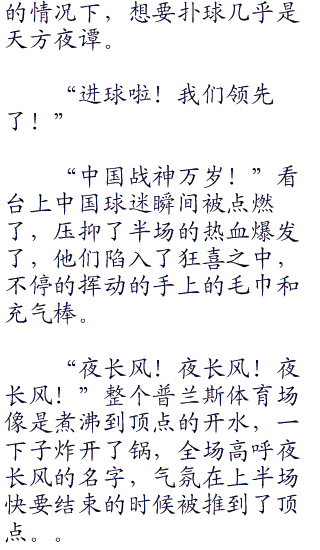 的情况下，想要扑球几乎是
天方夜谭。
“进球啦！我们领先
了！”
“中国战神万岁！”看
台上中国球迷瞬间被点燃
了，压抑了半场的热血爆发
了，他们陷入了狂喜之中，
不停的挥动的手上的毛巾和
充气棒。
“夜长风！夜长风！夜
长风！”整个普兰斯体育场
像是煮沸到顶点的开水，一
下子炸开了锅，全场高呼夜
长风的名字，气氛在上半场
快要结束的时候被推到了顶
点。。